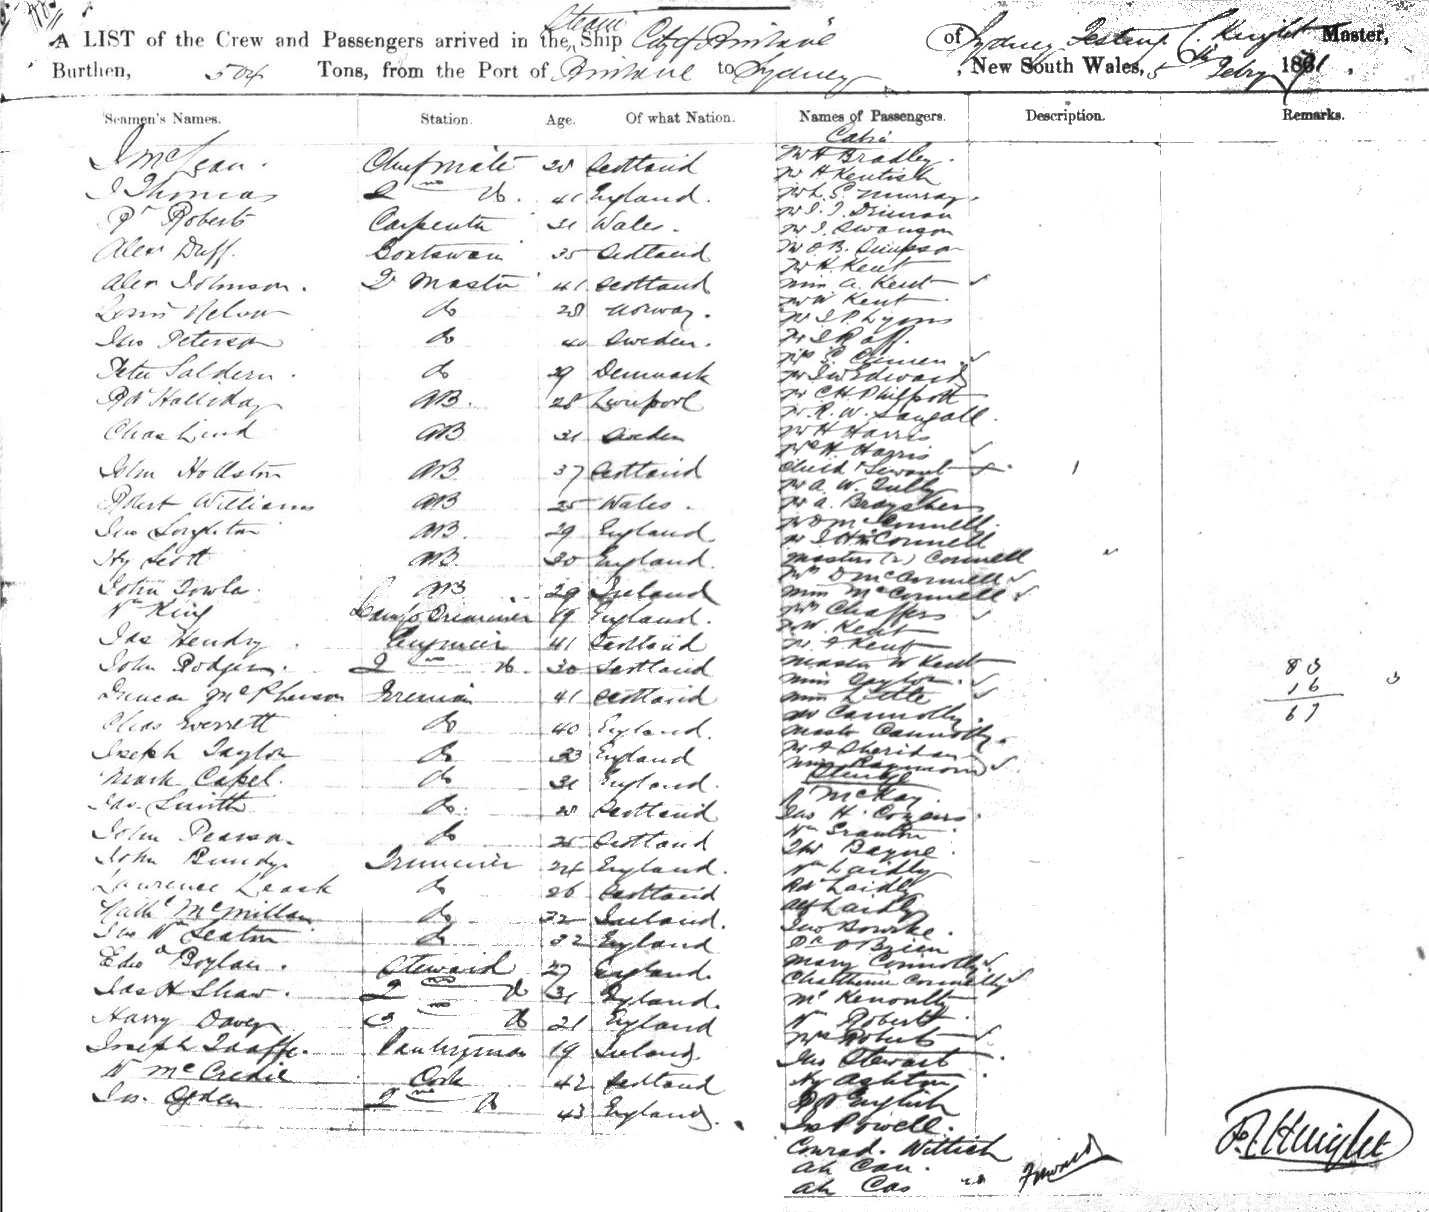 A LIST of the Crew and Passengers arrived in the Steam Ship City of Brisbane of Sydney Knight Master,
Burthen, 504 Tons, from the Port of Brisbane to Sydney, New South Wales, 5th Febry 1871.
Seamen's Names. Station. Age. Of what Nation. Names of Passengers. Description. Remarks.
J McLean. Chief mate 28 Scotland
J Thomas 2nd Do. 41 England.
Rt Roberts Carpenter 31 Wales.
Alex Duff. Boatswain 35 Scotland
Alex Johnson. Q Master 41 Scotland
Nelson do 28 Norway.
Jno Peterson do 40 Sweden.
Peter Saldern. do 29 Denmark
Rd Halliday AB. 28 Liverpool
Chas Lind AB 31 Sweden
John Hollston AB 37 Scotland
Robert Williams AB 25 Wales.
Jno AB. 29 England
Hy Scott AB. 30 England.
John AB 29 Ireland
Wm King Lamp Trimmer 19 England.
Jas Hendry Engineer 41 Scotland
John Rodger. 2nd Do. 30 Scotland
Duncan McPherson Fireman 41 Scotland
Chas Everett do 40 England.
Joseph Taylor do 33 England
Mark Capel. do 31 England.
Jas. Smith do. 28 Scotland
John Pearson. do 25 Scotland
John Bundy. Trimmer 24 England.
Lawrence Leask do 26 Scotland
McMillan do 22 Ireland.
Jno Wm Seaton do 32 England
Edwd Boylan. Steward 27 England.
Jas H Shaw. 2nd Do 31 England.
Harry Davey 3 Do 21 England
Joseph Taaffe. Pantryman 19 Ireland.
W McCredie Cook 42 Scotland
Jos. Ogden 2nd Do 43 England.
Cabin
Mr H Bradley.
Mr H Kentish
Mr L. E. Murray.
Mr J. J.
Mr J. Swanson
Mr O B. Simpson
Mr H. Kent
Miss A. Kent
Mr W Kent
Mr J P. Lyons
Mr J Raff.
Mrs E.
Mr J W Edwards
Mr C H Philpott
Mr. R. W.
Mr H Harris
Mrs H. Harris
Child & Servant
Mr A. W. Tully
Mr A.
Mr D McConnell.
Mr J H McConnell
Masters (2) Connell
Mrs D McConnell
Miss McConnell
Mrs Chaffers
W. Kent
Kent
Master W Kent
Miss Taylor.
Miss Little
Mr Connolly.
Master Connolly.
Mr Sheridan
Miss Raymond
Steerage
McKay.
Jno H.
Wm
Thos Bayne.
Wm Laidley
Rd Laidley
Alf Laidley
Jno Bourke.
O'Brien
Mary Connolly.
Connolly
W Roberts
Mrs Roberts
Jno Stewart
Hy Ashton
English
Powell.
Conrad. Wittich
Ah Can.
Ah Cas
Forward
83
16
67